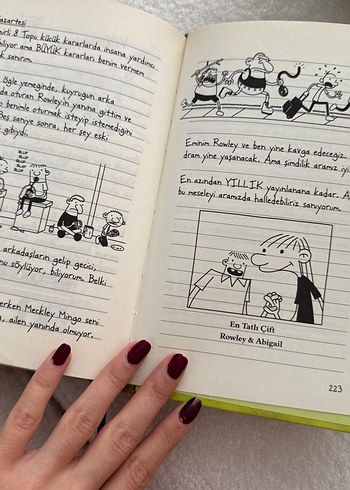 azartesi
8 Topu küçük kararlarda insana yardımı
ama BÜYÜK kararları benim vermem
sanırım.
öğle yemeğinde, kuyruğun arka
da oturan Rowley'in yanına gittim ve
benimle oturmak isteyip istemediğini
Beş saniye sonra, her şey eski
gibiydi.
BLUP
BLUP
BLUP
arkadaşların gelip geçici,
söylüyor, biliyorum. Belki
erken Meckley Mingo seni
a, ailen yanında olmuyor.
Eminim Rowley ve ben yine kavga edeceğiz
dram yine yaşanacak. Ama şimdilik aramız iyi
En azından YILLIK yayınlanana kadar. A
bu meseleyi aramızda halledebiliriz sanıyorum.
En Tatlı Çift
Rowley & Abigail
223